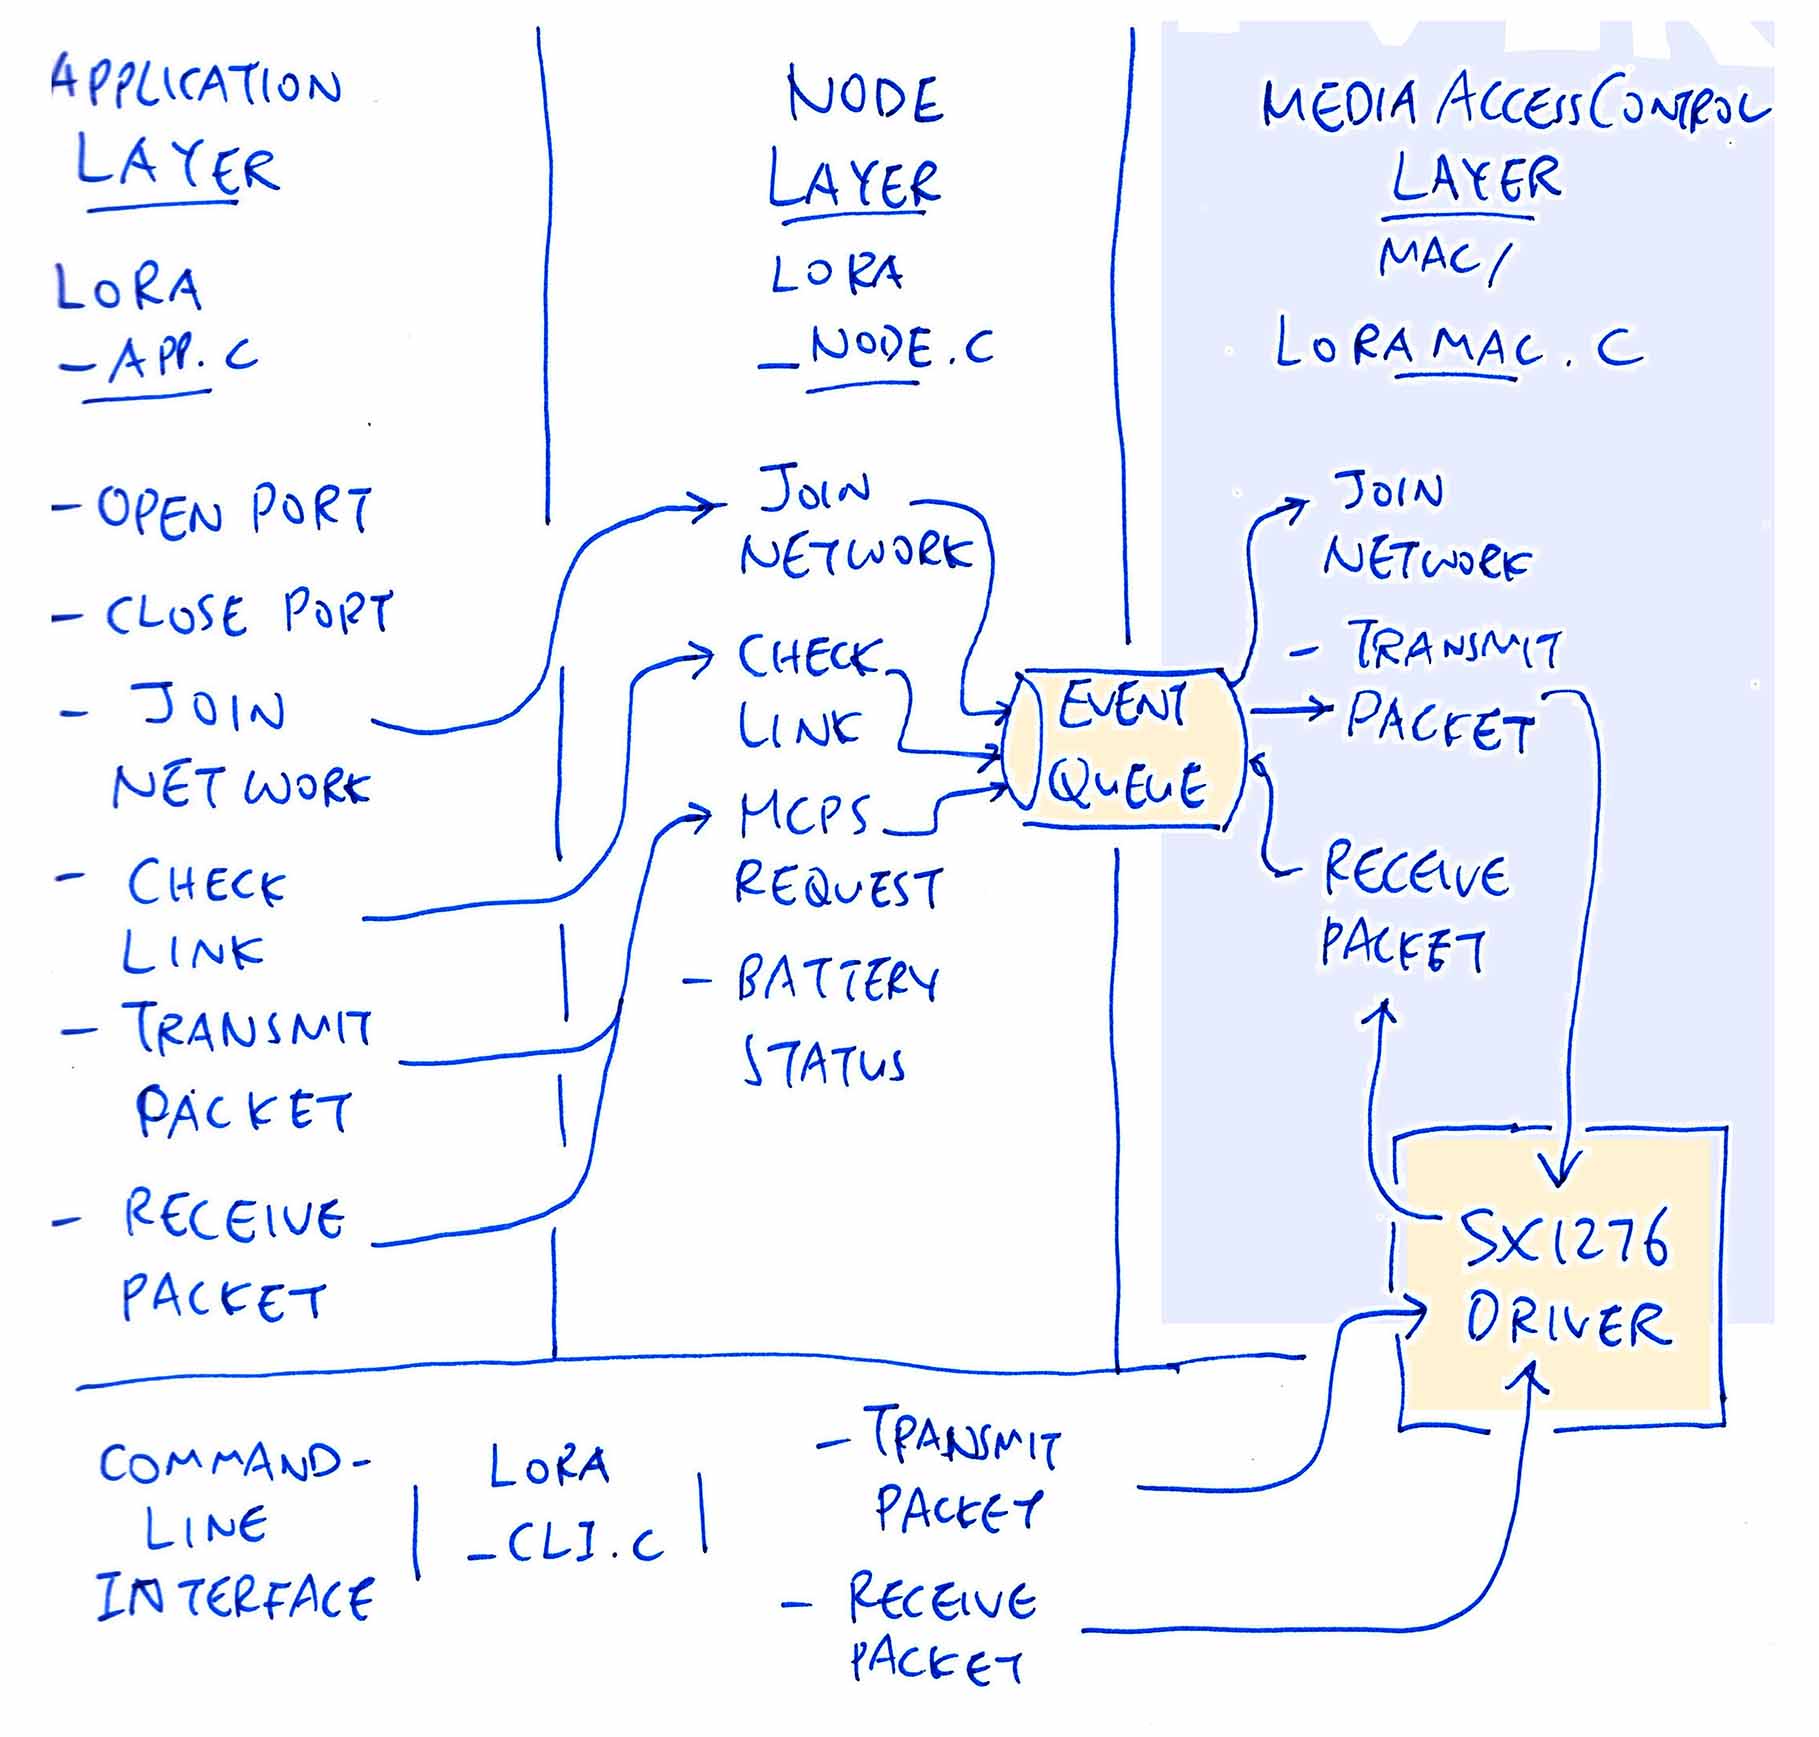 APPLICATION
LAYER
LORA
_APP.C
- OPEN PORT
- CLOSE PORT
- JOIN
NETWORK
- CHECK
LINK
- TRANSMIT
PACKET
- RECEIVE
PACKET
NODE
LAYER
LORA
_NODE.C
JOIN
NETWORK
CHECK
LINK
MCPS
REQUEST
- BATTERY
STATUS
EVENT
QUEUE
MEDIA ACCESS CONTROL
LAYER
MAC/
LORAMAC.C
JOIN
NETWORK
- TRANSMIT
PACKET
RECEIVE
PACKET
SX1276
DRIVER
COMMAND-
LINE
INTERFACE
LORA
_CLI.C
- TRANSMIT
PACKET
- RECEIVE
PACKET